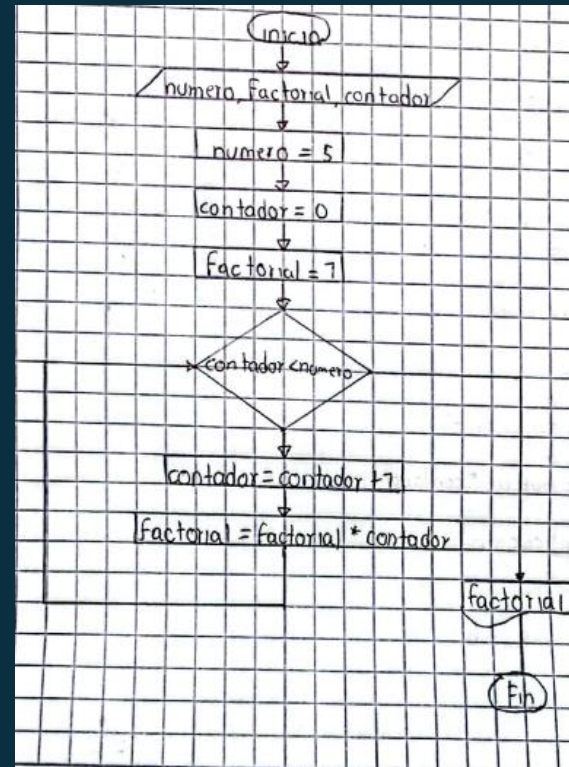 inicio
numero, factorial, contador
numero = 5
contador = 0
factorial = 1
contador < numero
contador = contador + 1
factorial = factorial * contador
factorial
Fin